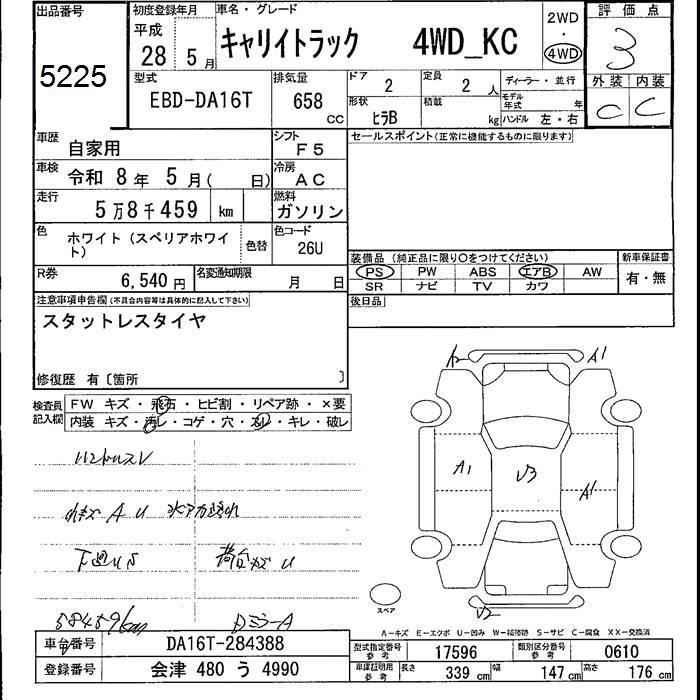 出品番号
5225
初度登録年月
平成
28 5月
車名・グレード
キャリイトラック 4WD_KC
2WD
・
4WD
評価点
3
外装 内装
C C
型式
EBD-DA16T
排気量
658
CC
ドア
2
定員
2 人
ディーラー・並行
形状
ヒラB
積載
kg
モデル年式 年
ハンドル 左・右
車歴
自家用
シフト
F5
セールスポイント(正常に機能するものに限ります)
車検
令和 8年 5月( 日)
冷房
AC
走行
5万8千459 km
燃料
ガソリン
色
ホワイト (スペリアホワイ
ト)
色替
色コード
26U
装備品 (純正品に限り○をつけてください)
PS PW ABS エアB AW
SR ナビ TV カワ
新車保証書
有・無
R券
6,540 円
名変通知期限
月 日
後日品
注意事項申告欄(不具合内容等は具体的に記入して下さい)
スタットレスタイヤ
修復歴 有〔箇所 〕
検査員
記入欄
FW キズ・飛石・ヒビ割・リペア跡・×要
内装 キズ・汚レ・コゲ・穴・スレ・キレ・破レ
A1
A1
V3
A1
V2
小キズ A U
下廻りS
荷台キズ U
58459km
スペア
A－キズ E－エクボ U－凹み W－補修跡 S－サビ C－腐食 XX－交換済
車台番号
DA16T-284388
登録番号
会津 480 う 4990
型式指定番号
参考
17596
類別区分番号
参考
0610
車庫証明用
参考
長さ
339 cm
幅
147 cm
高さ
176 cm